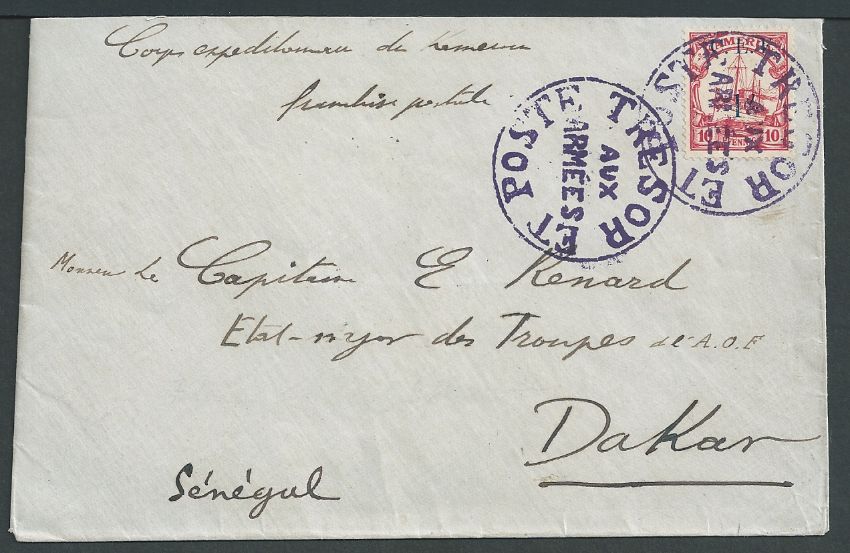 Corps expéditionnaire du Kamerun
franchise postale
TRESOR ET POSTE
AUX
ARMÉES
KAMERUN
10 PFENNIG 10
TRESOR ET POSTE
AUX
ARMÉES
Monsieur le Capitaine E Renard
Etat-major des Troupes de l'A.O.F
Dakar
Sénégal